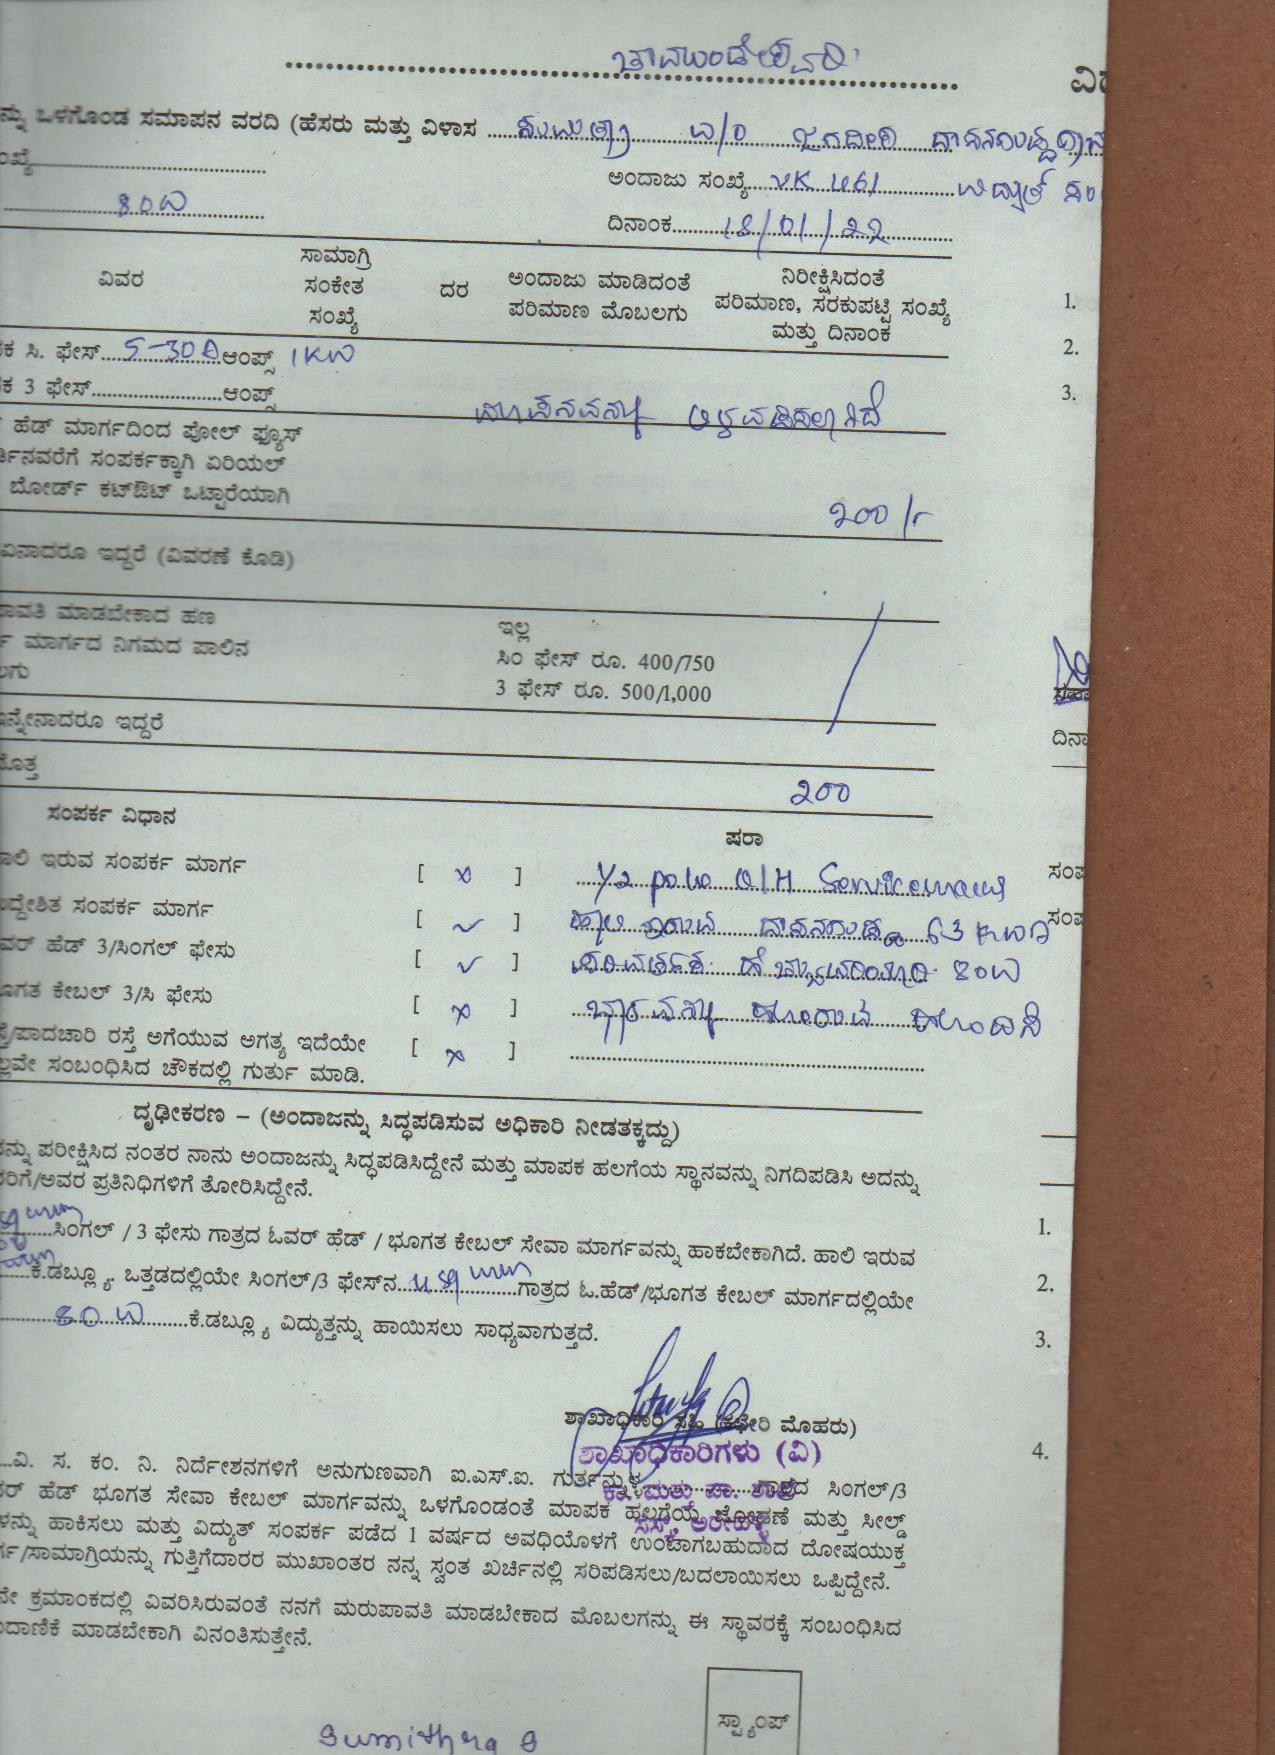 ಚಾಮುಂಡೇಶ್ವರಿ
ವಿ
ನ್ನು ಒಳಗೊಂಡ ಸಮಾಪನ ವರದಿ (ಹೆಸರು ಮತ್ತು ವಿಳಾಸ ಸುಮಿತ್ರಾ W/O ಜಗದೀಶ
ಂಖ್ಯೆ
ಅಂದಾಜು ಸಂಖ್ಯೆ VK 461 ವಿದ್ಯುತ್
80W
ದಿನಾಂಕ 18/01/22
ವಿವರ ಸಾಮಾಗ್ರಿ ಸಂಕೇತ ಸಂಖ್ಯೆ ದರ ಅಂದಾಜು ಮಾಡಿದಂತೆ ಪರಿಮಾಣ ಮೊಬಲಗು ನಿರೀಕ್ಷಿಸಿದಂತೆ ಪರಿಮಾಣ, ಸರಕುಪಟ್ಟಿ ಸಂಖ್ಯೆ ಮತ್ತು ದಿನಾಂಕ
1.
2.
3.
ಕ ಸಿ. ಫೇಸ್ 5-30A ಆಂಪ್ಸ್ 1KW
ಕ 3 ಫೇಸ್ ಆಂಪ್ಸ್
ಮಾಪನವನ್ನು ಅಳವಡಿಸಲಾಗಿದೆ
ಹೆಡ್ ಮಾರ್ಗದಿಂದ ಪೋಲ್ ಫ್ಯೂಸ್
ರ್ಡಿನವರೆಗೆ ಸಂಪರ್ಕಕ್ಕಾಗಿ ಏರಿಯಲ್
ಬೋರ್ಡ್ ಕಟ್‌ಔಟ್ ಒಟ್ಟಾರೆಯಾಗಿ
೨೦೦/-
ಏನಾದರೂ ಇದ್ದರೆ (ವಿವರಣೆ ಕೊಡಿ)
ಾವತಿ ಮಾಡಬೇಕಾದ ಹಣ ಇಲ್ಲ
ಮಾರ್ಗದ ನಿಗಮದ ಪಾಲಿನ ಸಿಂ ಫೇಸ್ ರೂ. 400/750
ಲಗು 3 ಫೇಸ್ ರೂ. 500/1,000
ಇನ್ನೇನಾದರೂ ಇದ್ದರೆ
ದಿನಾ
ೊತ್ತ
೨೦೦
ಸಂಪರ್ಕ ವಿಧಾನ ಷರಾ
ಾಲಿ ಇರುವ ಸಂಪರ್ಕ ಮಾರ್ಗ [ x ] Y2 pole O/H Servicemains
ದ್ದೇಶಿತ ಸಂಪರ್ಕ ಮಾರ್ಗ [ ✓ ] ಹಾಲಿ ಇರುವ 63 KVA
ವರ್ ಹೆಡ್ 3/ಸಿಂಗಲ್ ಫೇಸು [ ✓ ] ಪರಿವರ್ತಕ ಹೆಚ್ಚುವರಿಯಾಗಿ 80W
ೂಗತ ಕೇಬಲ್ 3/ಸಿ ಫೇಸು [ x ] ಭಾರವನ್ನು ಹೊರುವ
ೆ/ಪಾದಚಾರಿ ರಸ್ತೆ ಅಗೆಯುವ ಅಗತ್ಯ ಇದೆಯೇ [ x ]
ಲ್ಲವೇ ಸಂಬಂಧಿಸಿದ ಚೌಕದಲ್ಲಿ ಗುರ್ತು ಮಾಡಿ.
ಸಂಪ
ಸಂಪ
ದೃಢೀಕರಣ – (ಅಂದಾಜನ್ನು ಸಿದ್ಧಪಡಿಸುವ ಅಧಿಕಾರಿ ನೀಡತಕ್ಕದ್ದು)
ನ್ನು ಪರೀಕ್ಷಿಸಿದ ನಂತರ ನಾನು ಅಂದಾಜನ್ನು ಸಿದ್ಧಪಡಿಸಿದ್ದೇನೆ ಮತ್ತು ಮಾಪಕ ಹಲಗೆಯ ಸ್ಥಾನವನ್ನು ನಿಗದಿಪಡಿಸಿ ಅದನ್ನು
ರಿಗೆ/ಅವರ ಪ್ರತಿನಿಧಿಗಳಿಗೆ ತೋರಿಸಿದ್ದೇನೆ.
ಸಿಂಗಲ್ / 3 ಫೇಸು ಗಾತ್ರದ ಓವರ್ ಹೆಡ್ / ಭೂಗತ ಕೇಬಲ್ ಸೇವಾ ಮಾರ್ಗವನ್ನು ಹಾಕಬೇಕಾಗಿದೆ. ಹಾಲಿ ಇರುವ
ಕೆ.ಡಬ್ಲ್ಯೂ. ಒತ್ತಡದಲ್ಲಿಯೇ ಸಿಂಗಲ್/3 ಫೇಸ್‌ನ 4 sq mm ಗಾತ್ರದ ಓ.ಹೆಡ್/ಭೂಗತ ಕೇಬಲ್ ಮಾರ್ಗದಲ್ಲಿಯೇ
80 W ಕೆ.ಡಬ್ಲ್ಯೂ ವಿದ್ಯುತ್ತನ್ನು ಹಾಯಿಸಲು ಸಾಧ್ಯವಾಗುತ್ತದೆ.
1.
2.
3.
4.
ಶಾಖಾಧಿಕಾರಿ ಸಹಿ (ಕಛೇರಿ ಮೊಹರು)
ಶಾಖಾಧಿಕಾರಿಗಳು (ವಿ)
ಕಾ. ಮತ್ತು ಪಾ. ಶಾಖೆ
ವಿ. ಸ. ಕಂ. ನಿ. ನಿರ್ದೇಶನಗಳಿಗೆ ಅನುಗುಣವಾಗಿ ಐ.ಎಸ್.ಐ. ಗುರ್ತನ್ನುಳ್ಳ ಗಾತ್ರದ ಸಿಂಗಲ್/3
ವರ್ ಹೆಡ್ ಭೂಗತ ಸೇವಾ ಕೇಬಲ್ ಮಾರ್ಗವನ್ನು ಒಳಗೊಂಡಂತೆ ಮಾಪಕ ಹಲಗೆಯ ಜೋಡಣೆ ಮತ್ತು ಸೀಲ್ಡ್
ಳನ್ನು ಹಾಕಿಸಲು ಮತ್ತು ವಿದ್ಯುತ್ ಸಂಪರ್ಕ ಪಡೆದ 1 ವರ್ಷದ ಅವಧಿಯೊಳಗೆ ಉಂಟಾಗಬಹುದಾದ ದೋಷಯುಕ್ತ
ರ್ಗ/ಸಾಮಾಗ್ರಿಯನ್ನು ಗುತ್ತಿಗೆದಾರರ ಮುಖಾಂತರ ನನ್ನ ಸ್ವಂತ ಖರ್ಚಿನಲ್ಲಿ ಸರಿಪಡಿಸಲು/ಬದಲಾಯಿಸಲು ಒಪ್ಪಿದ್ದೇನೆ.
ನೇ ಕ್ರಮಾಂಕದಲ್ಲಿ ವಿವರಿಸಿರುವಂತೆ ನನಗೆ ಮರುಪಾವತಿ ಮಾಡಬೇಕಾದ ಮೊಬಲಗನ್ನು ಈ ಸ್ಥಾವರಕ್ಕೆ ಸಂಬಂಧಿಸಿದ
ಂದಾಣಿಕೆ ಮಾಡಬೇಕಾಗಿ ವಿನಂತಿಸುತ್ತೇನೆ.
ಸ್ಟ್ಯಾಂಪ್
Sumithra S